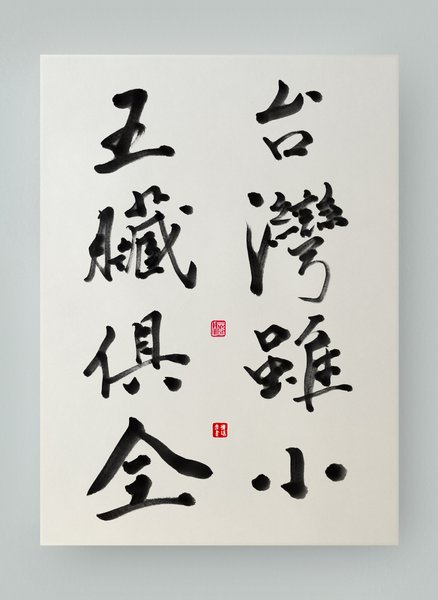 台灣雖小
五臟俱全